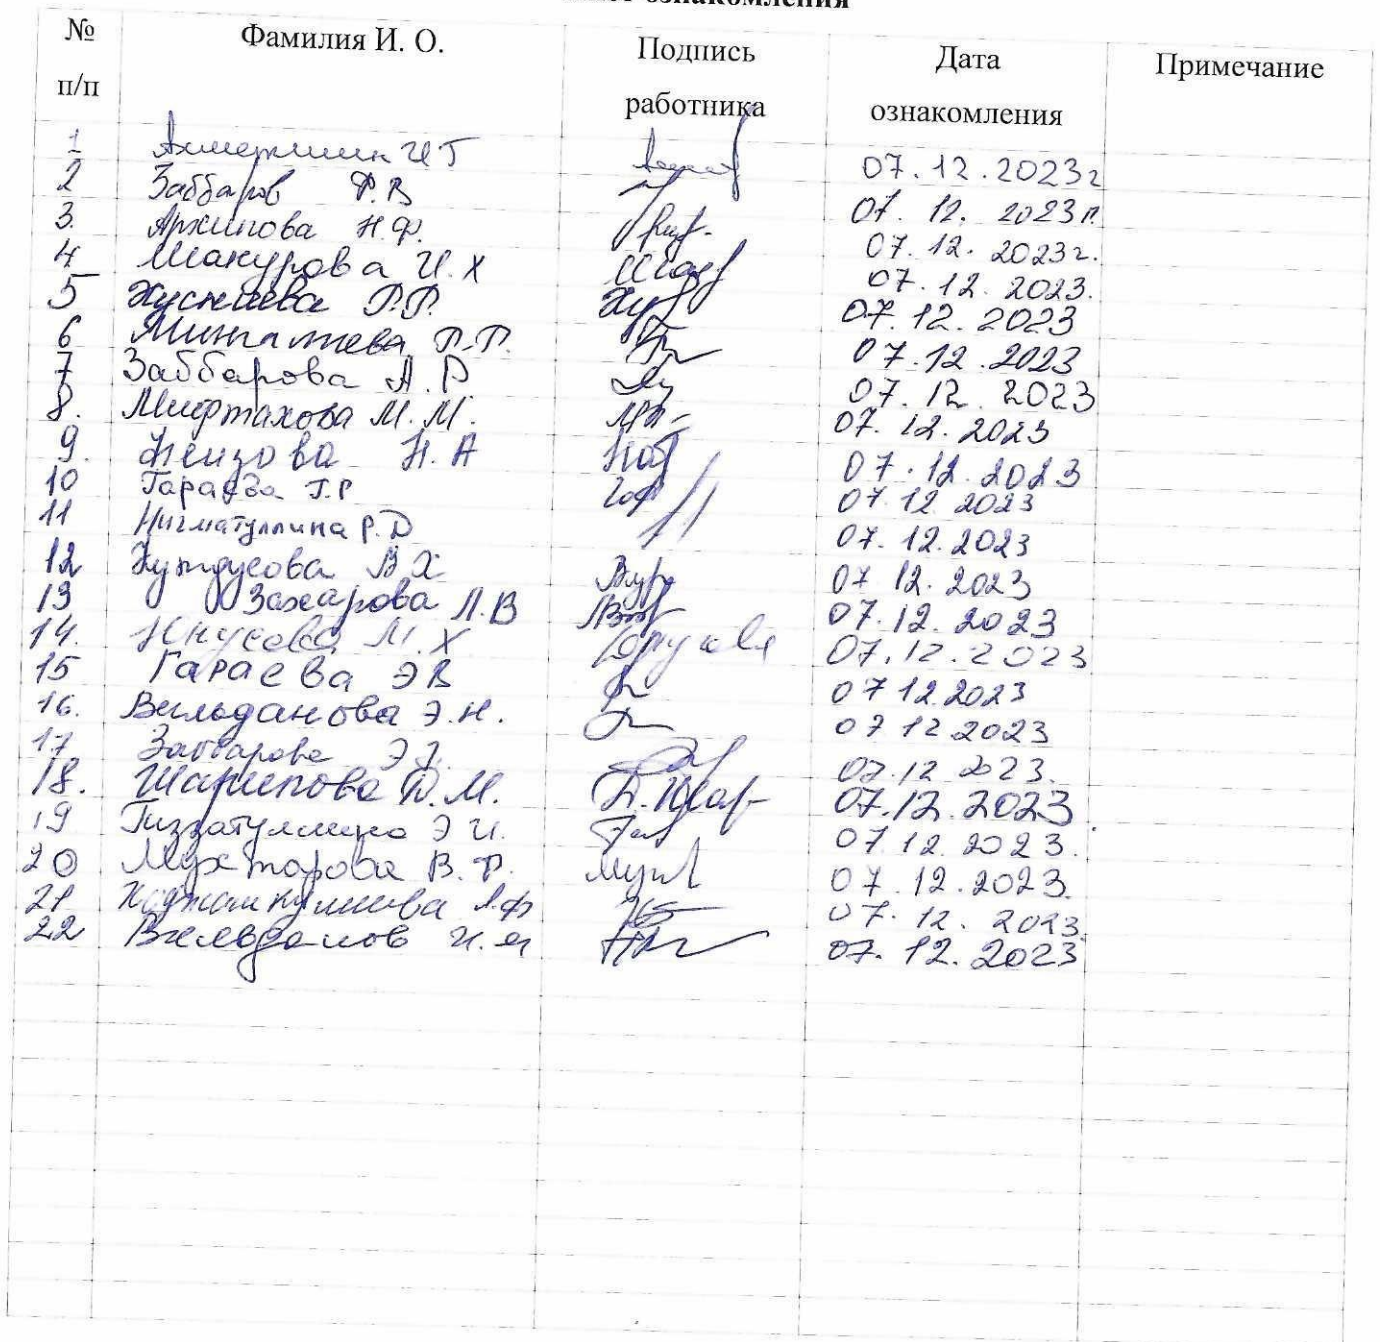 ознакомления
№ п/п Фамилия И. О. Подпись работника Дата ознакомления Примечание
1 Ахметшин И Г 07.12.2023г
2 Заббаров Ф.В 07.12.2023г.
3. Архипова Н.Ф. 07.12.2023г.
4 Шакурова И.Х 07.12.2023.
5 Хуснеева Р.Р. 07.12.2023
6 Мингалиева Р.Р. 07.12.2023
7 Заббарова А.Р 07.12.2023
8. Мифтахова М.М. 07.12.2023
9. Феизова Н.А 07.12.2023
10 Гараева Г.Р 07.12.2023
11 Нигматуллина Р.Д 07.12.2023
12 Кутдусова В Х 07 12.2023
13 Захарова Л.В 07.12.2023
14. Юнусова М.Х 07.12.2023
15 Гараева Э В 07 12.2023
16. Вильданова Э.Н. 07 12 2023
17 Заббарова Э 07.12 2023.
18. Шарипова Д.М. Д.Шар 07.12.2023
19 Гиззатуллина Э И. 07.12.2023.
20 Мухтарова В.Р. 07.12.2023.
21 07.12.2023.
22 И.Я 07.12.2023